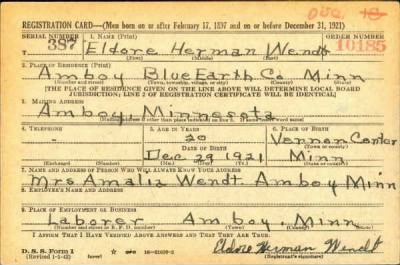 REGISTRATION CARD—(Men born on or after February 17, 1897 and on or before December 31, 1921)
SERIAL NUMBER 1. NAME (Print) ORDER NUMBER
387 Eldore Herman Wendt 10185
(First) (Middle) (Last)
2. PLACE OF RESIDENCE (Print)
Amboy Blue Earth Co Minn
(Number and street) (Town, township, village, or city) (County) (State)
[THE PLACE OF RESIDENCE GIVEN ON THE LINE ABOVE WILL DETERMINE LOCAL BOARD
JURISDICTION; LINE 2 OF REGISTRATION CERTIFICATE WILL BE IDENTICAL]
3. MAILING ADDRESS
Amboy, Minnesota
4. TELEPHONE 5. AGE IN YEARS 6. PLACE OF BIRTH
20 Vernon Center
DATE OF BIRTH (Town or county)
Dec 29 1921 Minn
(Exchange) (Number) (Mo.) (Day) (Yr.) (State or country)
7. NAME AND ADDRESS OF PERSON WHO WILL ALWAYS KNOW YOUR ADDRESS
Mrs Amalia Wendt. Amboy Minn
8. EMPLOYER'S NAME AND ADDRESS
9. PLACE OF EMPLOYMENT OR BUSINESS
Laborer Amboy. Minn
(Number and street or R. F. D. number) (Town) (County) (State)
I AFFIRM THAT I HAVE VERIFIED ABOVE ANSWERS AND THAT THEY ARE TRUE.
D. S. S. Form 1
(Revised 1-5-42) Eldore Herman Wendt
(Registrant's signature)